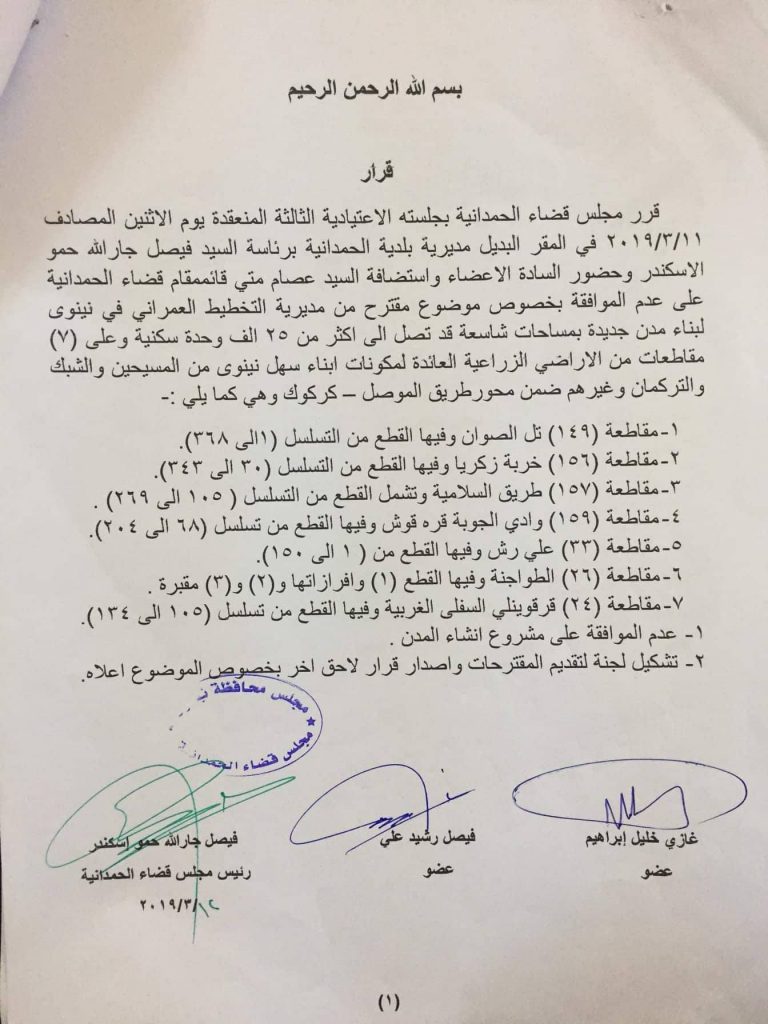 بسم الله الرحمن الرحيم
قرار
قرر مجلس قضاء الحمدانية بجلسته الاعتيادية الثالثة المنعقدة يوم الاثنين المصادف
٢٠١٩/٣/١١ في المقر البديل مديرية بلدية الحمدانية برئاسة السيد فيصل جارالله حمو
الاسكندر وحضور السادة الاعضاء واستضافة السيد عصام متي قائممقام قضاء الحمدانية
على عدم الموافقة بخصوص موضوع مقترح من مديرية التخطيط العمراني في نينوى
لبناء مدن جديدة بمساحات شاسعة قد تصل الى اكثر من ٢٥ الف وحدة سكنية وعلى (٧)
مقاطعات من الاراضي الزراعية العائدة لمكونات ابناء سهل نينوى من المسيحين والشبك
والتركمان وغيرهم ضمن محورطريق الموصل – كركوك وهي كما يلي :-
١-مقاطعة (١٤٩) تل الصوان وفيها القطع من التسلسل (١الى ٣٦٨).
٢-مقاطعة (١٥٦) خربة زكريا وفيها القطع من التسلسل (٣٠ الى ٣٤٣).
٣-مقاطعة (١٥٧) طريق السلامية وتشمل القطع من التسلسل ( ١٠٥ الى ٢٦٩) .
٤-مقاطعة (١٥٩) وادي الجوبة قره قوش وفيها القطع من تسلسل (٦٨ الى ٢٠٤).
٥-مقاطعة (٣٣) علي رش وفيها القطع من ( ١ الى ١٥٠).
٦-مقاطعة (٢٦) الطواجنة وفيها القطع (١) وافرازاتها و(٢) و(٣) مقبرة .
٧-مقاطعة (٢٤) قرقوينلي السفلى الغربية وفيها القطع من تسلسل (١٠٥ الى ١٣٤).
١- عدم الموافقة على مشروع انشاء المدن .
٢- تشكيل لجنة لتقديم المقترحات واصدار قرار لاحق اخر بخصوص الموضوع اعلاه.
مجلس محافظة
مجلس قضاء الحمدانية
غازي خليل إبراهيم
عضو
فيصل رشيد علي
عضو
فيصل جارالله حمو إسكندر
رئيس مجلس قضاء الحمدانية
٢٠١٩/٣/١٢
(١)